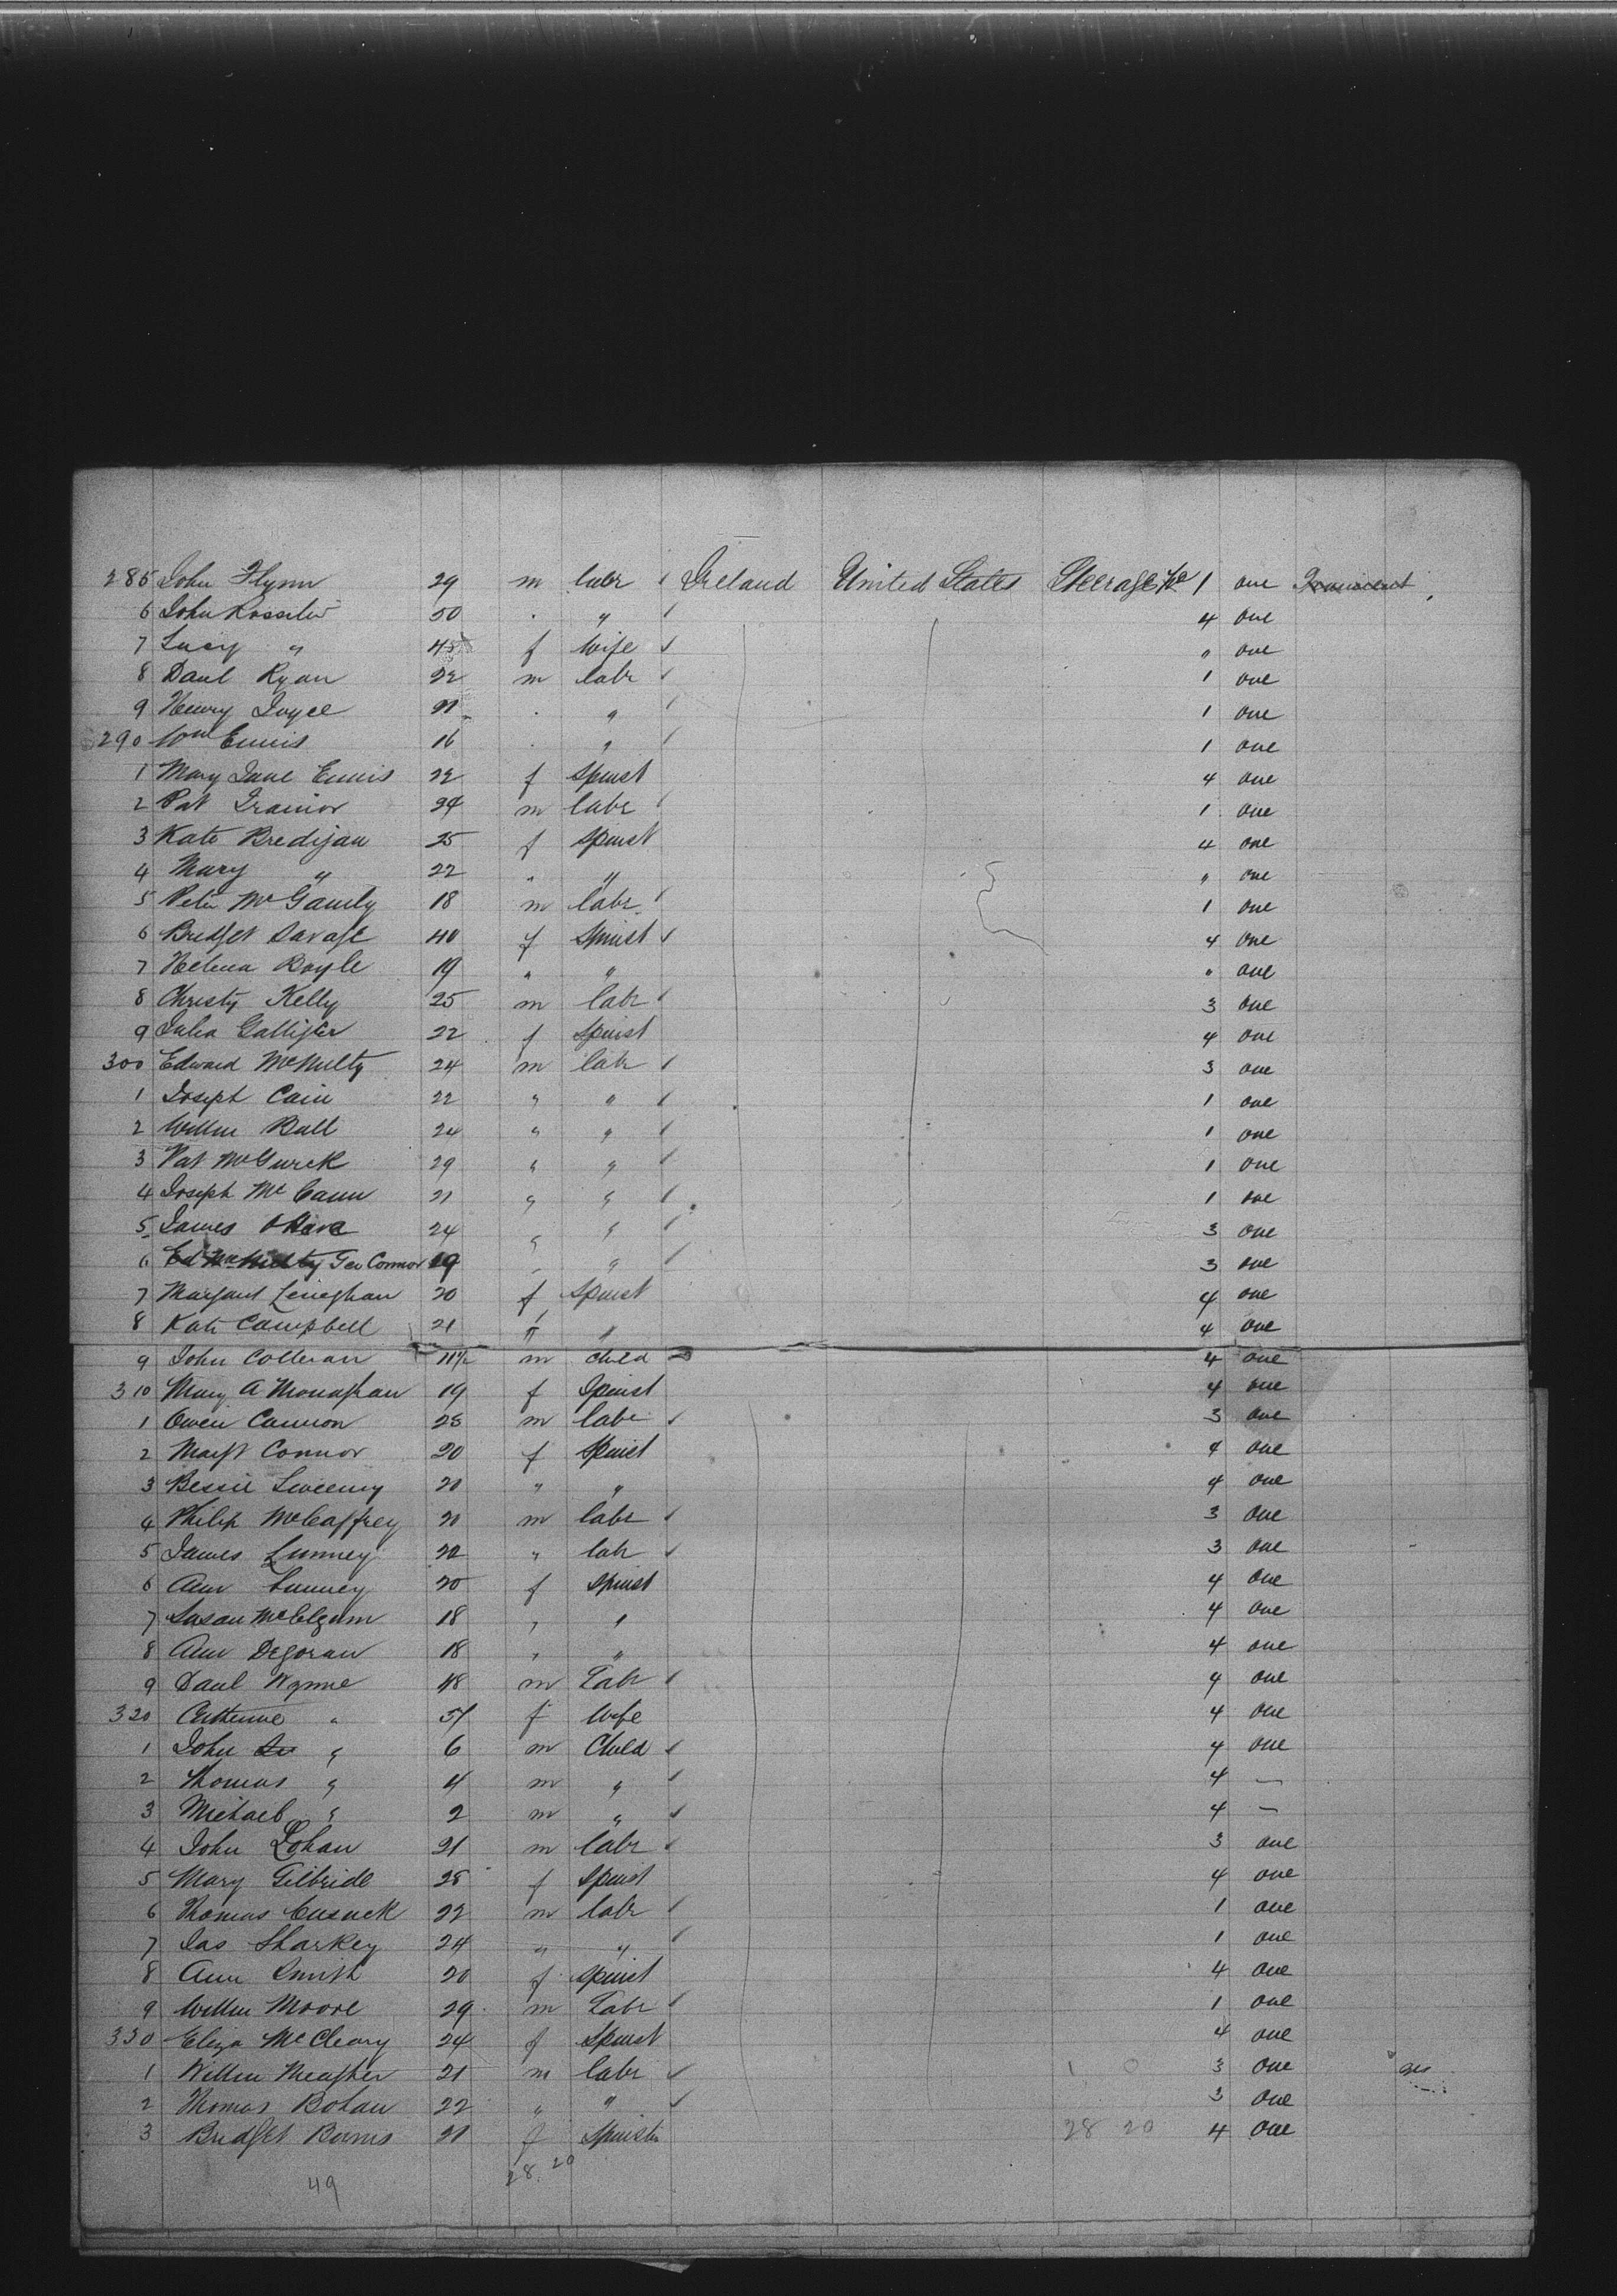 285 John Flynn 29 m labr Ireland United States Steerage 1 one
6 John Rossiter 50 . " 4 one
7 Lucy " 45 f wife " one
8 Danl Ryan 22 m labr 1 one
9 Henry Joyce 21 . " 1 one
290 Wm Ennis 16 . " 1 one
1 Mary Jane Ennis 22 f Spinst 4 one
2 Pat Trainor 24 m labr 1 one
3 Kate Bredijan 25 f Spinst 4 one
4 Mary " 22 " " " one
5 Peter McGauly 18 m labr 1 one
6 Bridget Savage 40 f Spinst 4 one
7 Helena Boyle 19 " " " one
8 Christy Kelly 25 m labr 3 one
9 Julia Galligher 22 f Spinst 4 one
300 Edward McNulty 24 m labr 3 one
1 Joseph Cain 22 " " 1 one
2 Willm Ball 24 " " 1 one
3 Pat McGurck 29 " " 1 one
4 Joseph McCann 21 " " 1 one
5 James 24 " " 3 one
6 Ed McNulty Geo Connor 19 " " 3 one
7 Margaret Leneghan 20 f Spinst 4 one
8 Kate Campbell 21 " " 4 one
9 John Colleran 11½ m child 4 one
310 Mary A Monaghan 19 f Spinst 4 one
1 Owen Cannon 23 m labr 3 one
2 Margt Connor 20 f Spinst 4 one
3 Bessie Sweeny 20 " " 4 one
4 Philip McCaffrey 20 m labr 3 one
5 James Lunney 22 " labr 3 one
6 Ann Lunney 20 f Spinst 4 one
7 Susan 18 " " 4 one
8 Ann Degoran 18 " " 4 one
9 Danl Wynne 48 m Labr 4 one
320 Catherine " f Wife 4 one
1 John " 6 m Child 4 one
2 Thomas " 4 m " 4 —
3 Michael " 2 m " 4 —
4 John Lohan 21 m labr 3 one
5 Mary Gilbride 25 f Spinst 4 one
6 Thomas Cusack 22 m labr 1 one
7 Jas Sharkey 24 " " 1 one
8 Ann Smith 20 f Spinst 4 one
9 Willm Moore 29 m Labr 1 one
330 Eliza McCleary 24 f Spinst 4 one
1 Willm Meagher 21 m labr 1 0 3 one
2 Thomas Bohan 22 " " 3 one
3 Bridget Burns 21 f Spinstr 28 20 4 one
28 20
49